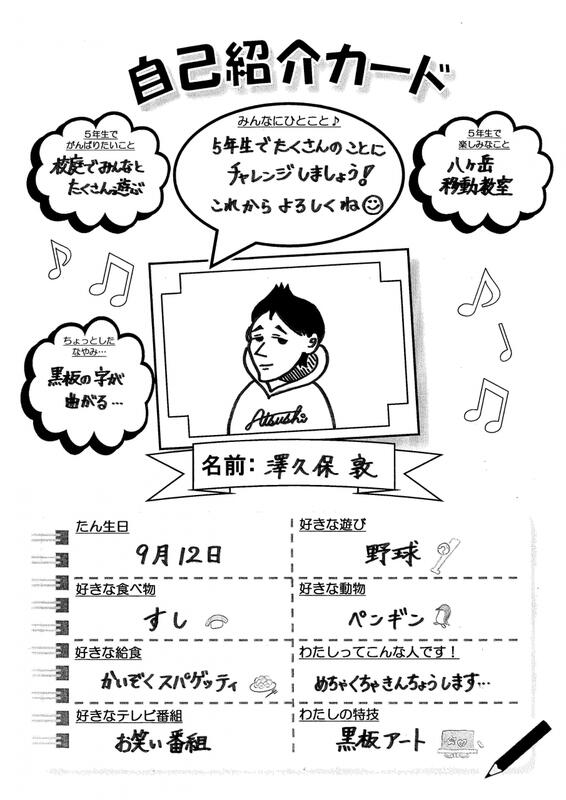 自己紹介カード
みんなにひとこと♪
5年生でたくさんのことに
チャレンジしましょう!
これからよろしくね
5年生で
がんばりたいこと
校庭でみんなと
たくさん遊ぶ
5年生で
楽しみなこと
八ヶ岳
移動教室
ちょっとした
なやみ…
黒板の字が
曲がる…
Atsushi
名前: 澤久保 敦
たん生日
9月12日
好きな遊び
野球
好きな食べ物
すし
好きな動物
ペンギン
好きな給食
かいぞくスパゲッティ
わたしってこんな人です!
めちゃくちゃきんちょうします…
好きなテレビ番組
お笑い番組
わたしの特技
黒板アート